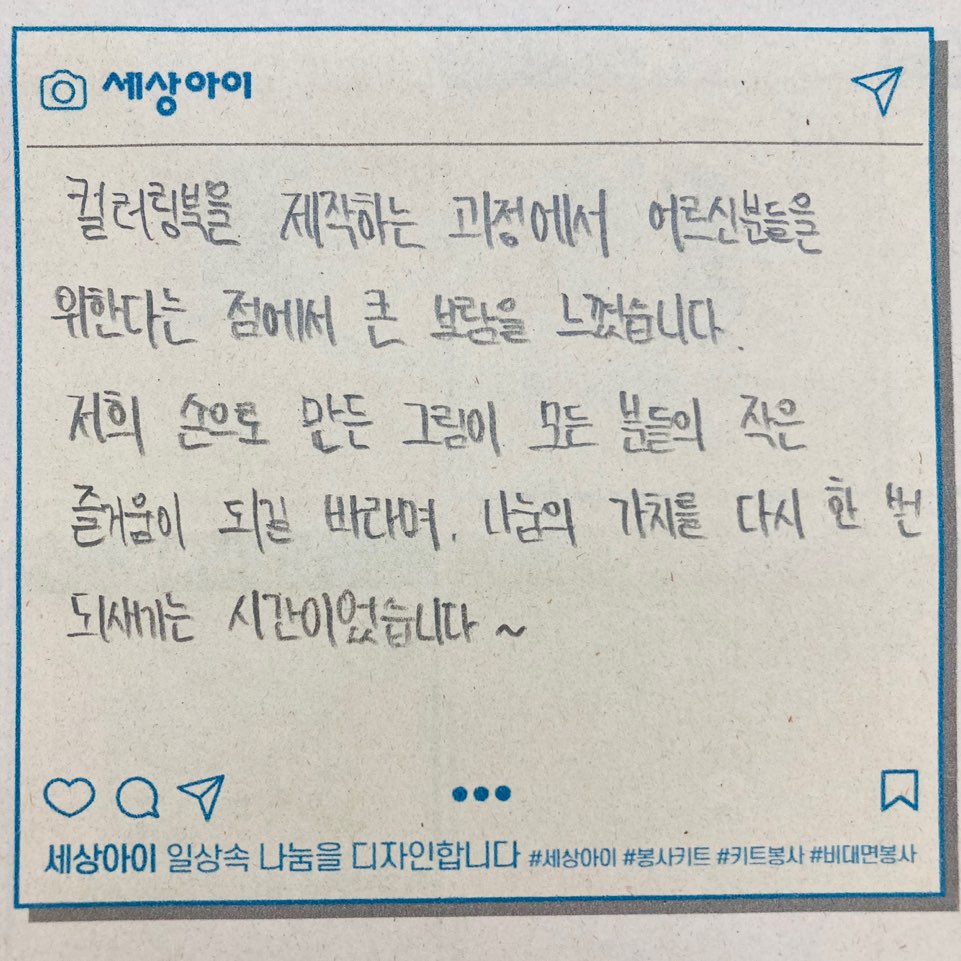 세상아이
컬러링북을 제작하는 과정에서 어르신분들을
위한다는 점에서 큰 보람을 느꼈습니다.
저희 손으로 만든 그림이 모든 분들의 작은
즐거움이 되길 바라며, 나눔의 가치를 다시 한 번
되새기는 시간이었습니다 ~
세상아이 일상속 나눔을 디자인합니다 #세상아이 #봉사키트 #키트봉사 #비대면봉사